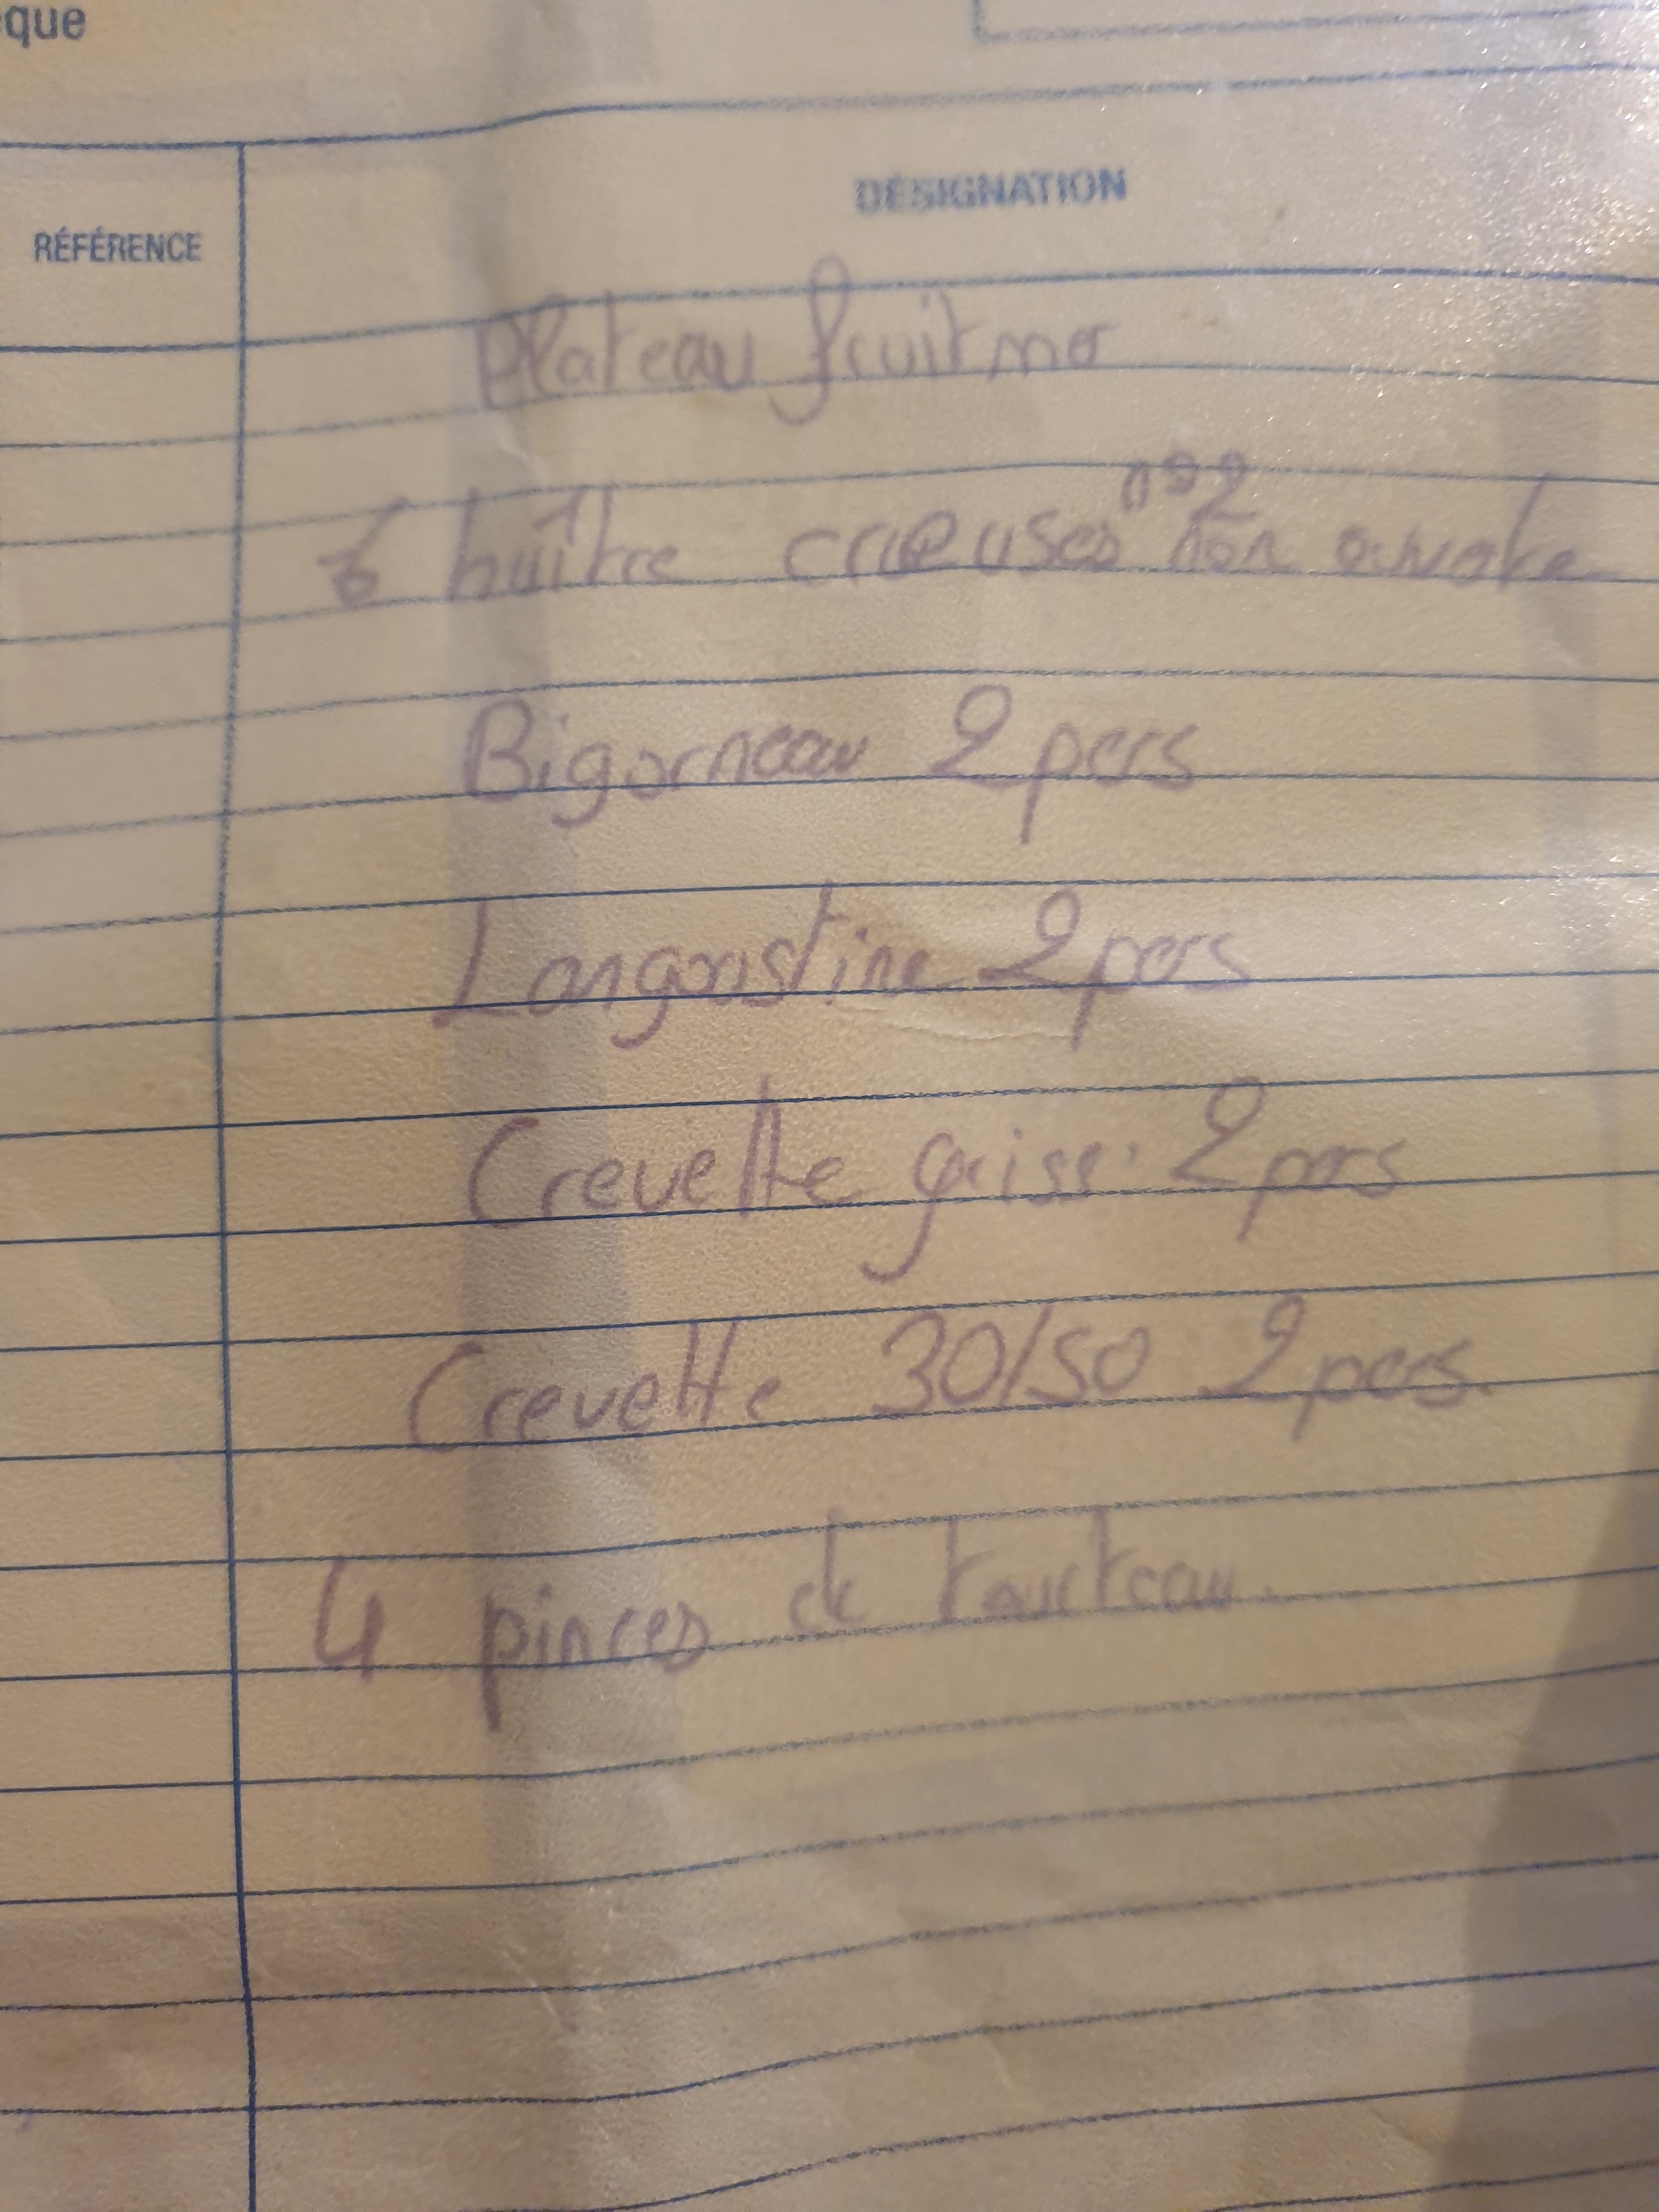 que
DÉSIGNATION
RÉFÉRENCE
Plateau fruit mer
n°2
6 huître creuses non ouverte
Bigorneau 2 pers
Langoustine 2 pers
Crevette grise 2 pers
Crevette 30/50 2 pers.
4 pinces de tourteau.